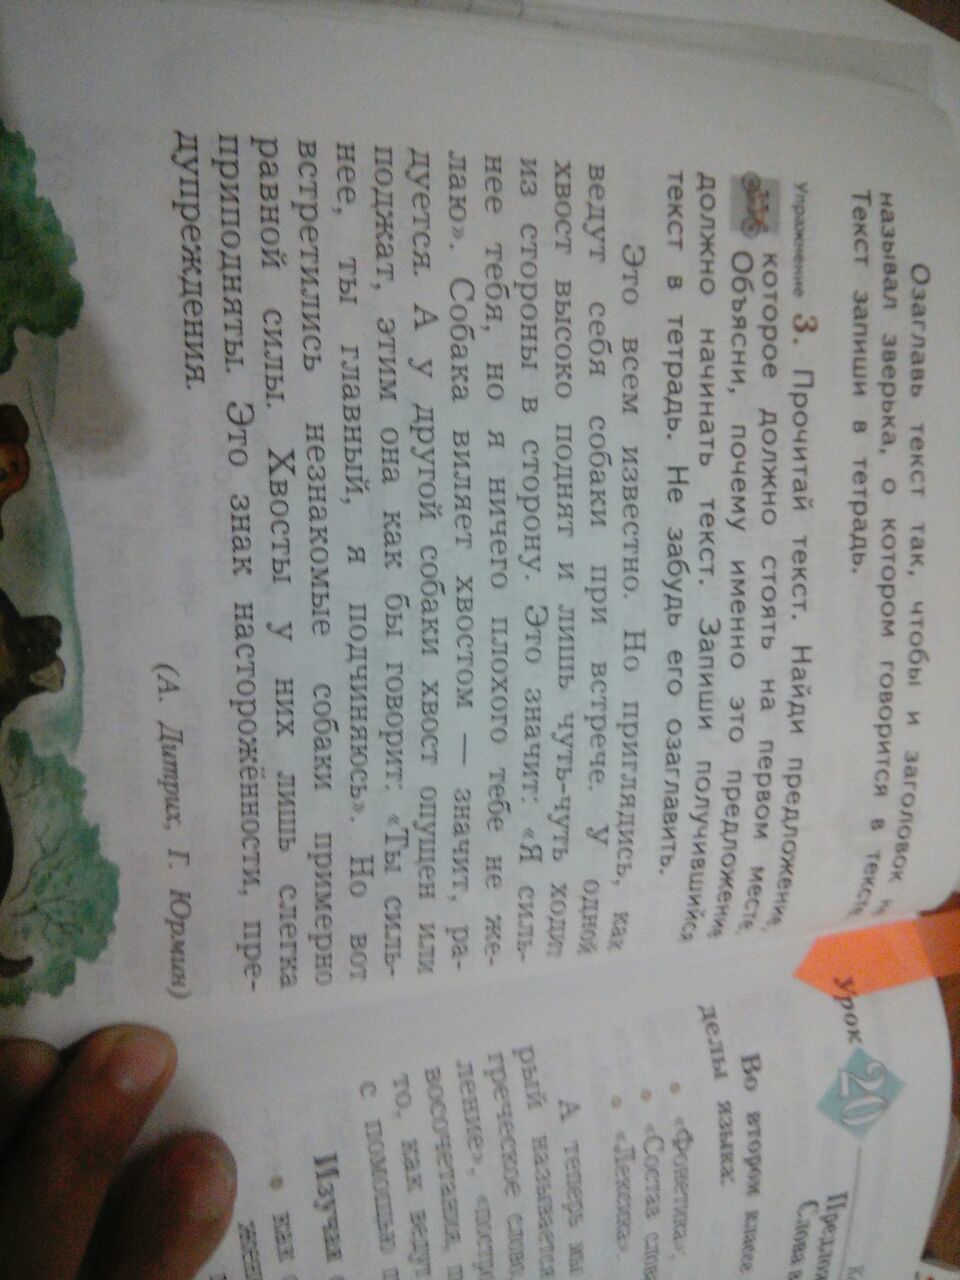 Озаглавь текст так, чтобы и заголовок
называл зверька, о котором говорится в тексте.
Текст запиши в тетрадь.
Упражнение 3. Прочитай текст. Найди предложение,
которое должно стоять на первом месте.
Объясни, почему именно это предложение
должно начинать текст. Запиши получившийся
текст в тетрадь. Не забудь его озаглавить.
Это всем известно. Но приглядись, как
ведут себя собаки при встрече. У одной
хвост высоко поднят и лишь чуть-чуть ходит
из стороны в сторону. Это значит: «Я силь-
нее тебя, но я ничего плохого тебе не же-
лаю». Собака виляет хвостом — значит, ра-
дуется. А у другой собаки хвост опущен или
поджат, этим она как бы говорит: «Ты силь-
нее, ты главный, я подчиняюсь». Но вот
встретились незнакомые собаки примерно
равной силы. Хвосты у них лишь слегка
приподняты. Это знак насторожённости, пре-
дупреждения.
(А. Дитрих, Г. Юрмин)
Урок 20
Во втором классе
делы языка:
• «Фонетика»,
• «Состав слова
• «Лексика».
А теперь мы
рый называется
греческое слово,
ление», «постр
восочетания, п
то, как ведут
с помощью п
Изучая
• как